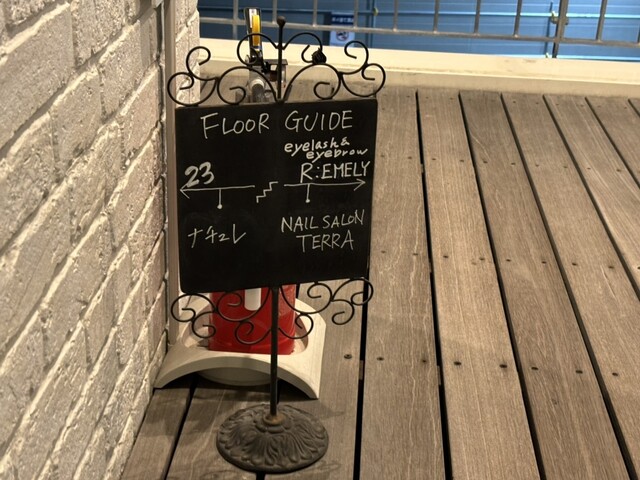 FLOOR GUIDE
eyelash&
eyebrow
23
R:EMELY
ナチュレ
NAIL SALON
TERRA